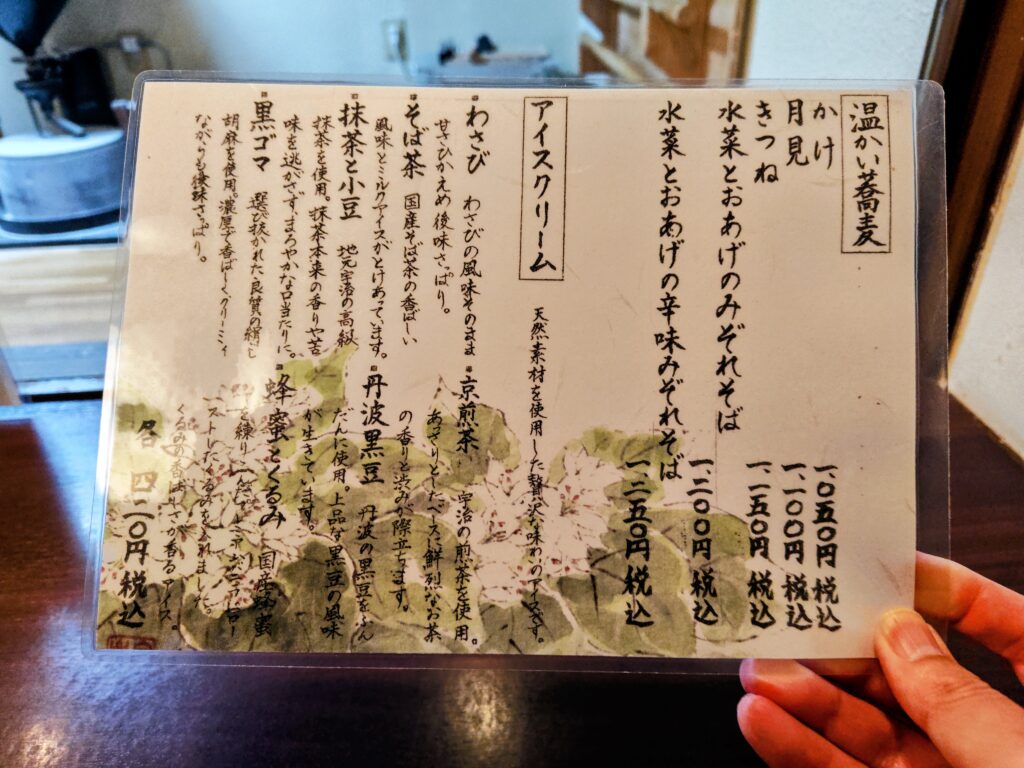 温かい蕎麦
かけ 一、〇五〇円 税込
月見 一、一〇〇円 税込
きつね 一、一五〇円 税込
水菜とおあげのみぞれそば 一、二〇〇円 税込
水菜とおあげの辛味みぞれそば 一、二五〇円 税込
アイスクリーム 天然素材を使用した贅沢な味わいのアイスです。
わさび わさびの風味そのまま
甘さひかえめ後味さっぱり。
そば茶 国産そば茶の香ばしい
風味とミルクアイスがとけあっています。
抹茶と小豆 地元宇治の高級
抹茶を使用。抹茶本来の香りや苦
味を逃がさずまろやかな口当たりに。
黒ゴマ 選び抜かれた良質の絹ごし
胡麻を使用。濃厚で香ばしくクリーミィ
ながらも後味さっぱり。
京煎茶 宇治の煎茶を使用。
あっさりとしたべったい鮮烈なお茶
の香りと渋みが際立ってます。
丹波黒豆 丹波の黒豆をふん
だんに使用 上品な黒豆の風味
が生きています。
蜂蜜とくるみ 国産蜂蜜
を練り
ーストしたくるみを入れました。
くるみの香ばしさが香るアイス
各 四二〇円 税込